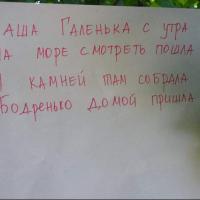 аша Галенька с утра
на море смотреть пошла
И камней там собрала
Бодренько домой пришла